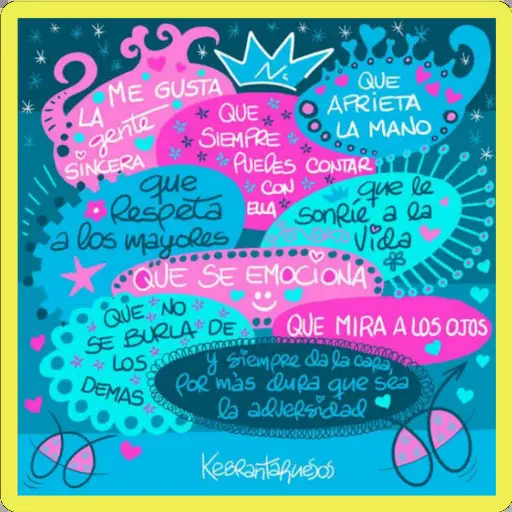 ME GUSTA
LA
gente
SINCERA
QUE
SIEMPRE
PUEDES CONTAR
CON
ELLA
QUE
AFRIETA
LA MANO
que
RespetA
a los mayores
que le
sonRíe a la
Vida
QUE SE EMOCIONA
QUE NO
SE BURLA DE
LOS
DEMAS
QUE MIRA A LOS OJOS
y siempre da la cara,
por màs dura que sea
la adversidad
KebRantahuesos